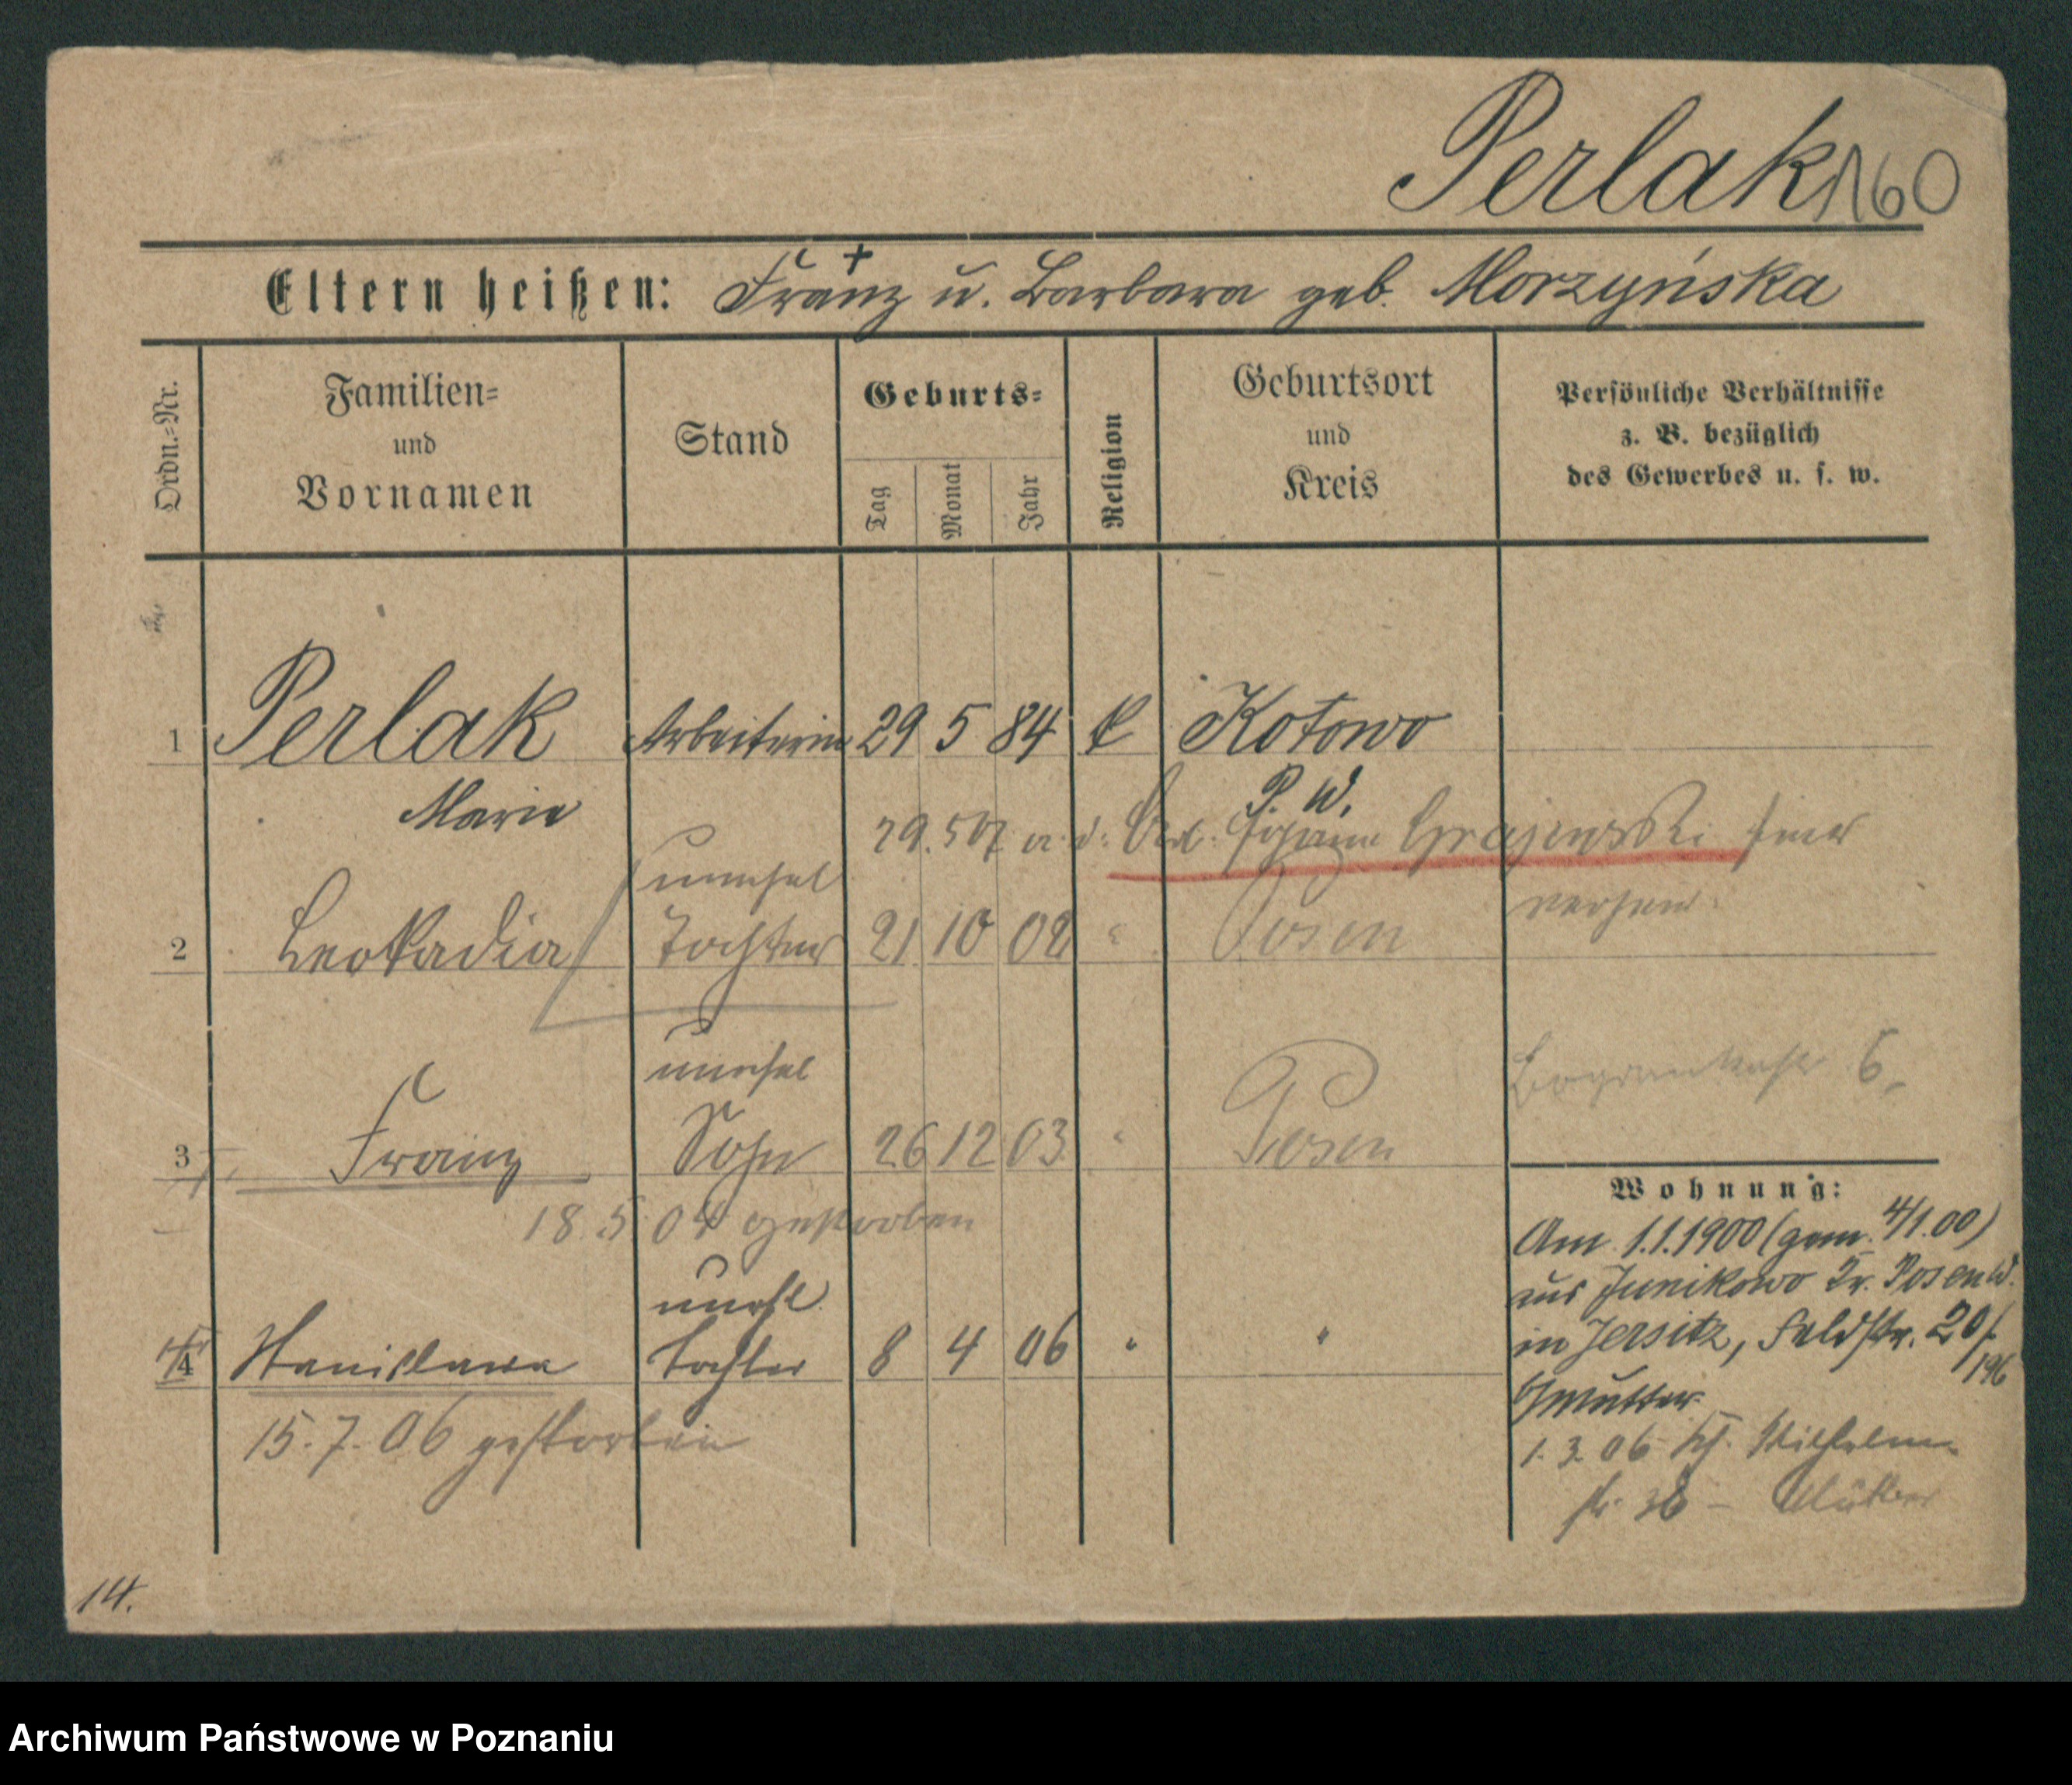 Perlak 160
Eltern heißen: Franz + u. Barbara geb. Morzyńska
Ordn.-Nr.
Familien-
und
Vornamen
Stand
Geburts-
Tag
Monat
Jahr
Religion
Geburtsort
und
Kreis
Persönliche Verhältnisse
z. B. bezüglich
des Gewerbes u. s. w.
1 Perlak Arbeiterin 29 5 84 k Kotowo
Marie P. W.
29.5 07 Johann Grajewski hier
unehel verheir.
2 Leokadia Tochter 21 10 02 " Posen
unehel 6.
3 Franz Sohn 26 12 03 " Posen
18 5 04 gestorben
unehl.
4 Stanislawa Tochter 8 4 06 " "
15.7.06 gestorben
Wohnung:
Am 1.1.1900 (gem. 4/1.00)
aus Junikowo Kr. Posen W.
in Jersitz, Feldstr. 20/
196
Mutter
1.3.06 Wilhelm
str. 38 - Mutter
14.
Archiwum Państwowe w Poznaniu